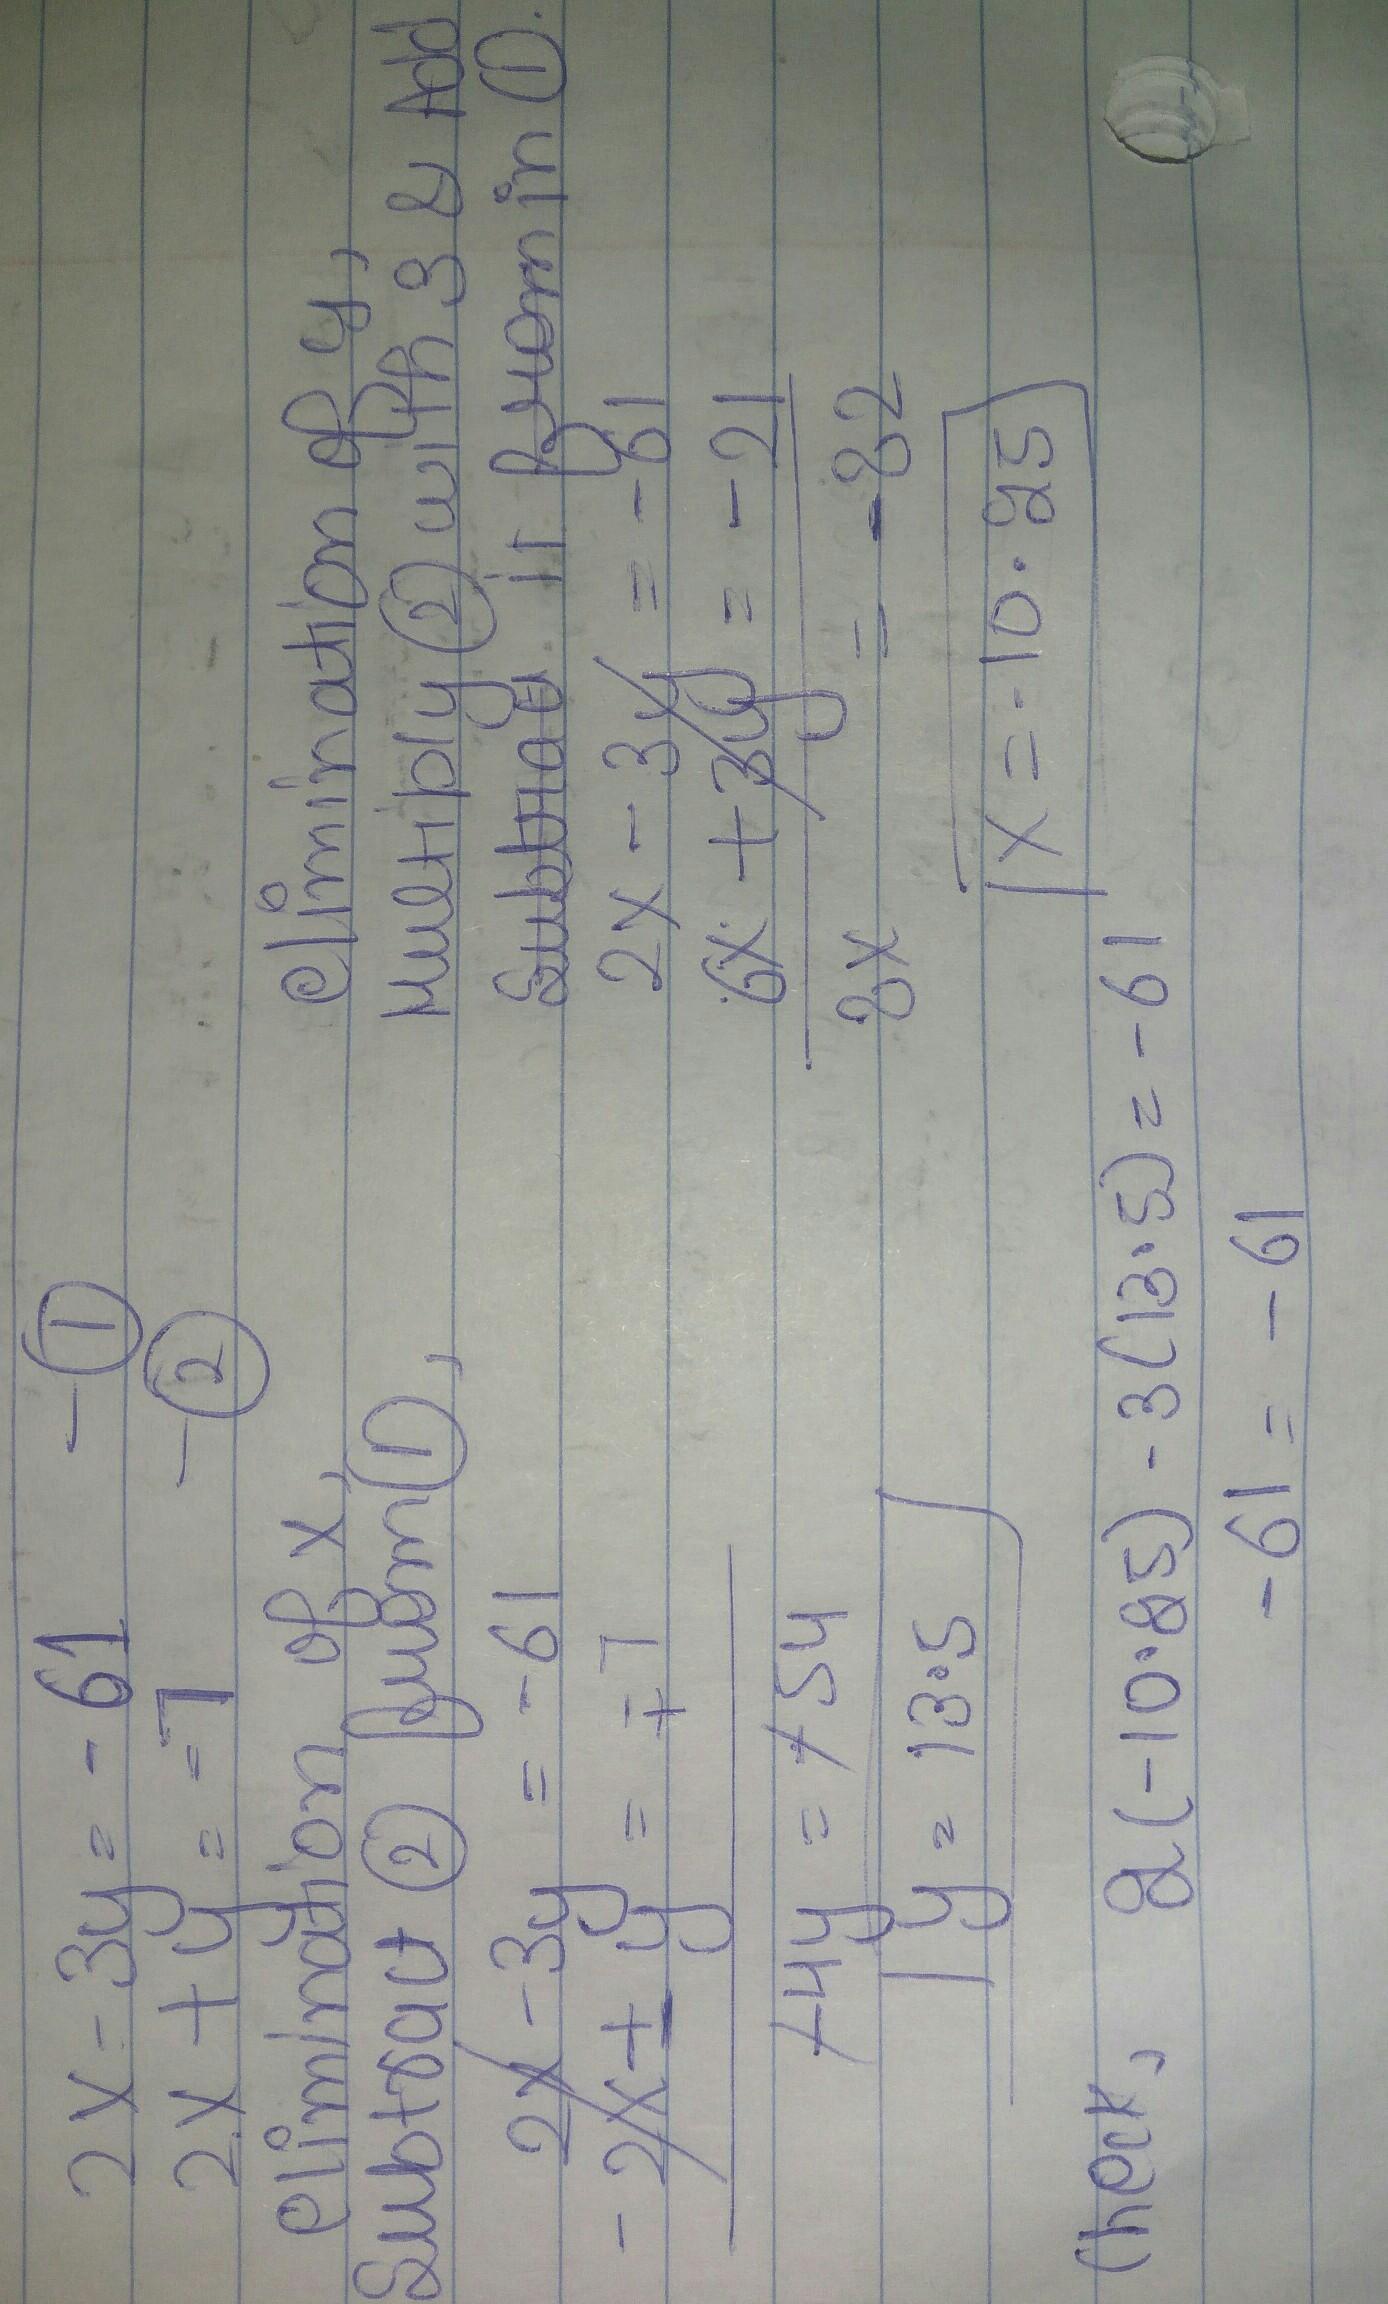 2x - 3y = - 61 - ①
2x + y = - 7 - ②
elimination of x,
Subtract ② from ①,
2x - 3y = - 61
- 2x ± y = ∓ 7
+4y = +54
y = 13.5
elimination of y,
Multiply ② with 3 & Add
Subtract it from in ①.
2x - 3y = - 61
6x + 3y = - 21
8x = - 82
x = - 10.25
Check, 2(-10.25) - 3(13.5) = - 61
- 61 = - 61